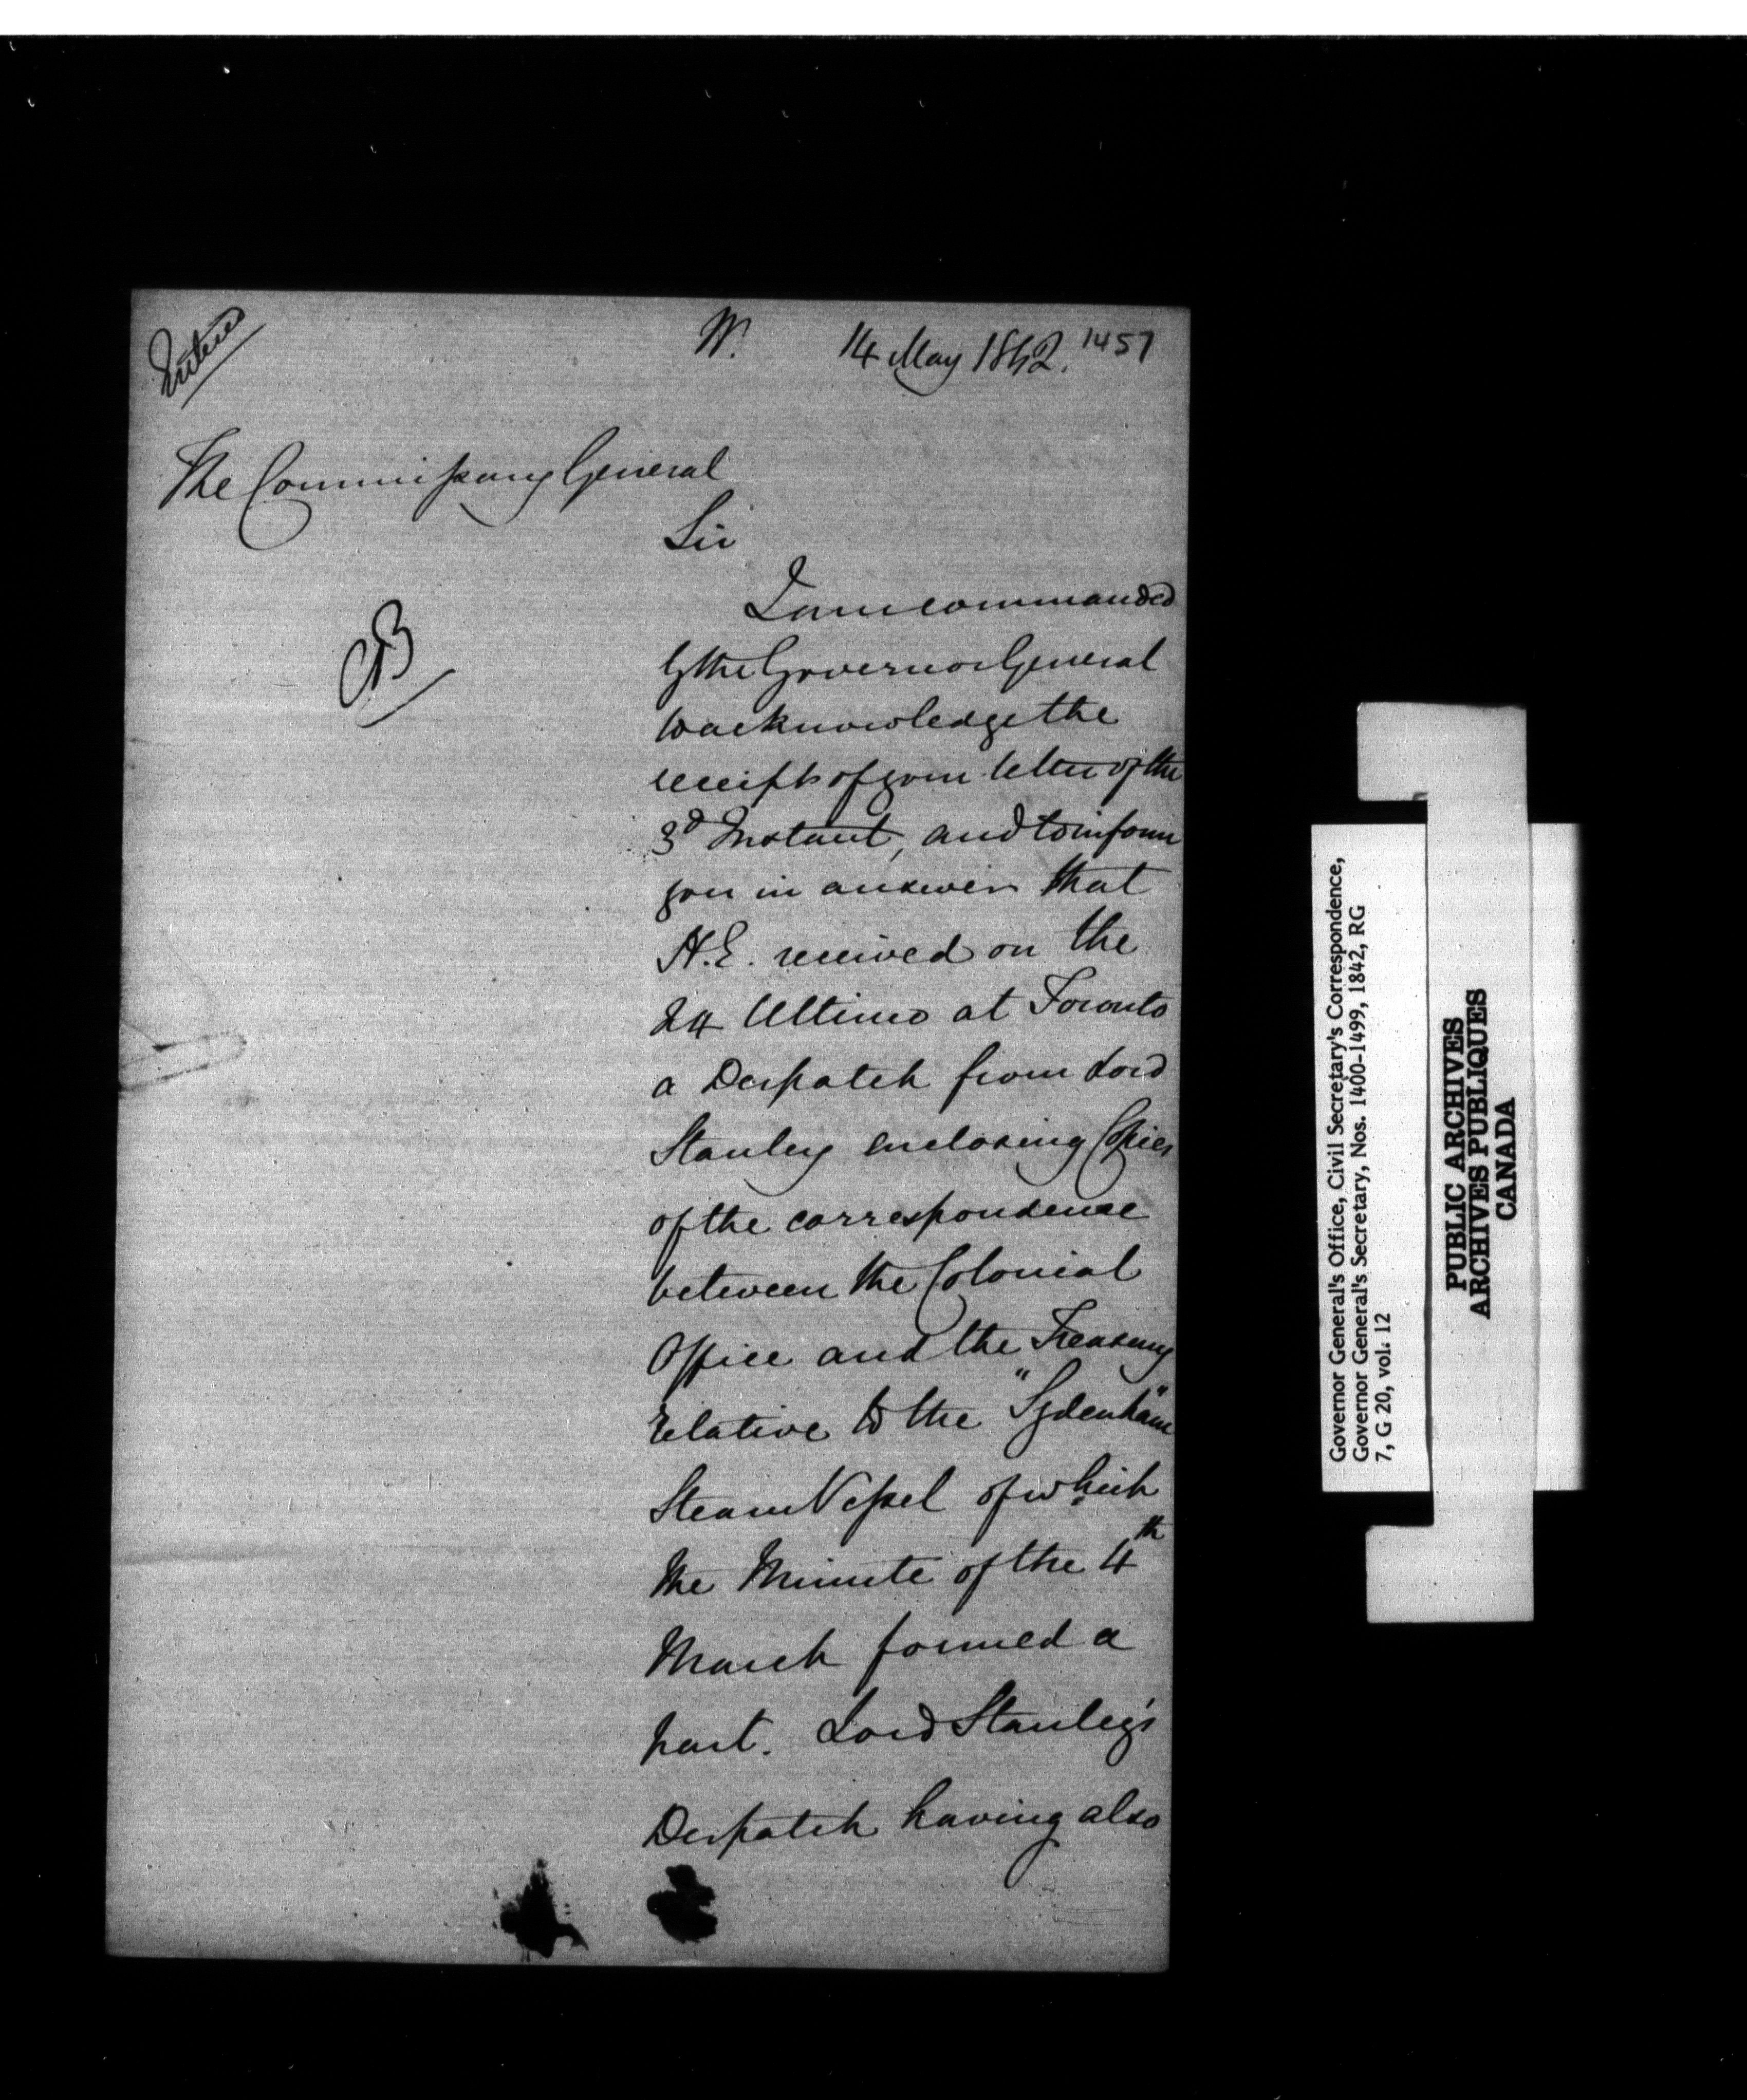 W. 14 May 1842. 1457
The Commissary General
Sir
I am commanded
by the Governor General
to acknowledge the
receipt of your letter of the
3d Instant, and to inform
you in answer that
H.E. received on the
24 Ultimo at Toronto
a Despatch from Lord
Stanley enclosing Copies
of the correspondence
between the Colonial
Office and the Treasury
relative to the "Sydenham"
Steam Vessel of which
the Minute of the 4th
March formed a
part. Lord Stanley's
Despatch having also
Governor General's Office, Civil Secretary's Correspondence,
Governor General's Secretary, Nos. 1400-1499, 1842, RG
7, G 20, vol. 12
PUBLIC ARCHIVES
ARCHIVES PUBLIQUES
CANADA